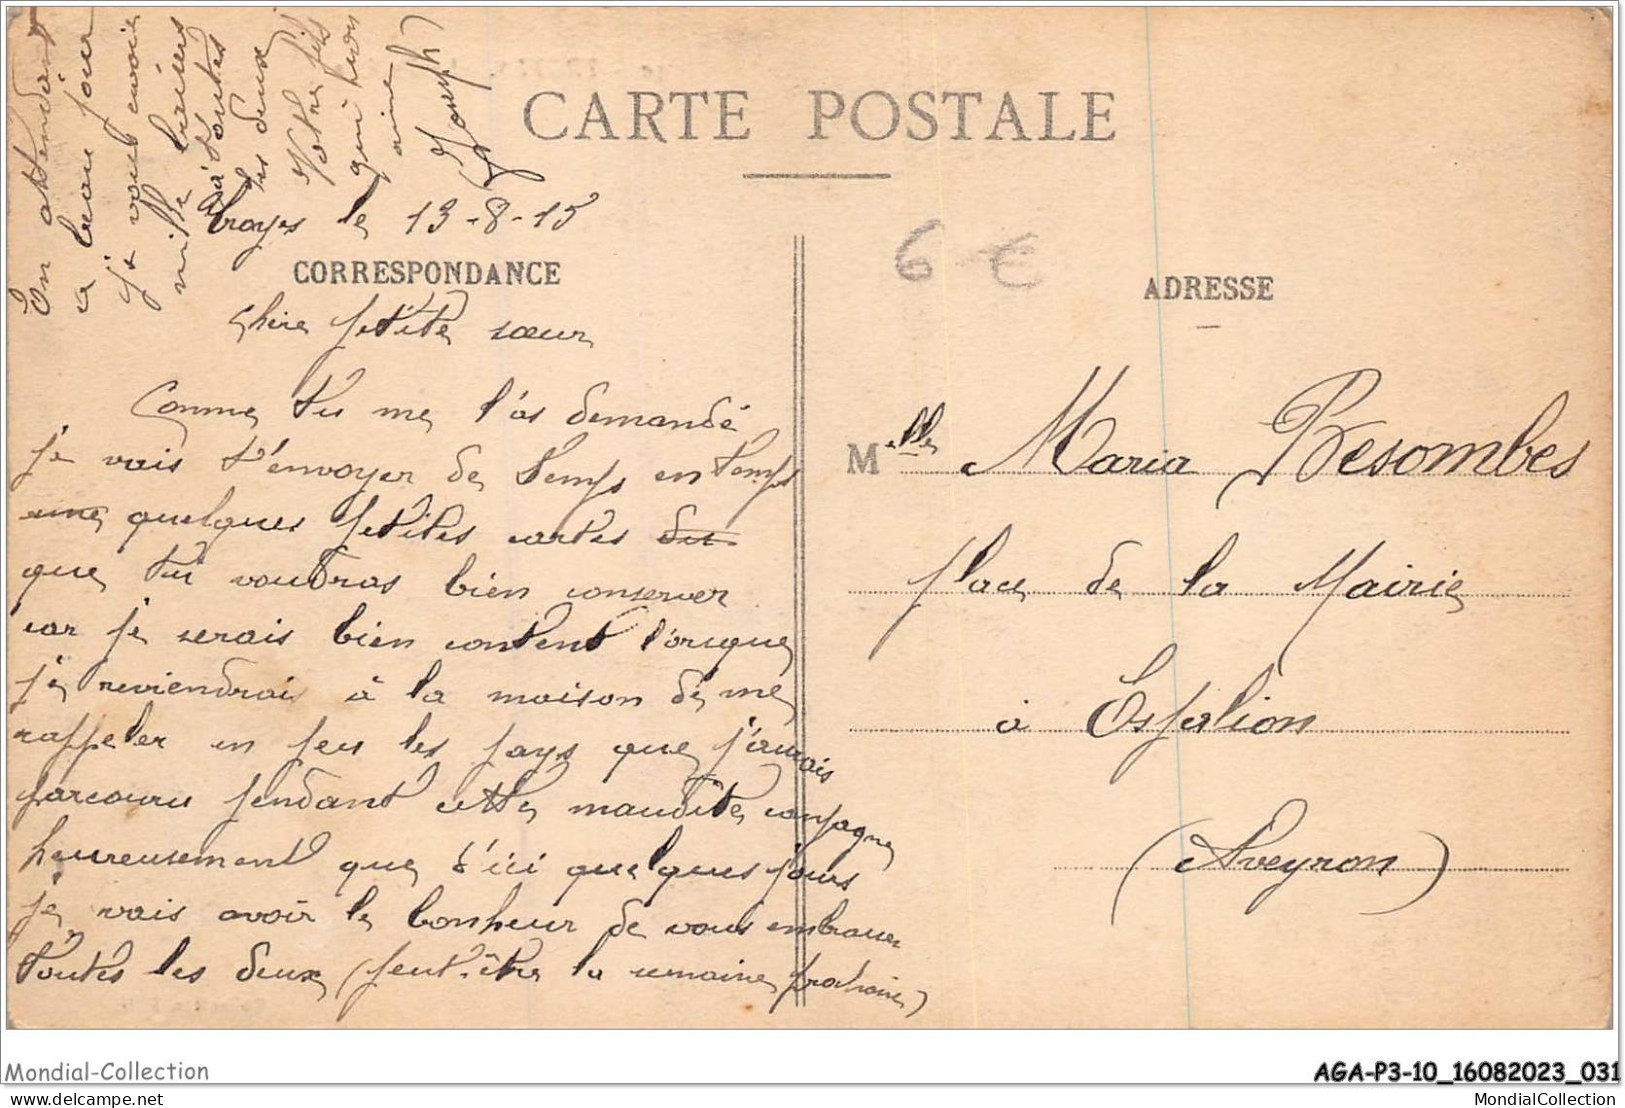 CARTE POSTALE
Troyes le 13-8-15
CORRESPONDANCE
Chère petite sœur
Comme tu me l'as demandé
je vais t'envoyer de temps en temps
une quelques petites cartes des
que tu voudras bien conserver
car je serais bien content l'orsque
je reviendrais à la maison de me
rappeler un peu les pays que j'aurais
parcouru pendant cette maudite campagne
heureusement que d'ici quelques jours
je vais avoir le bonheur de vous embrasser
toutes les deux (peut-être la semaine prochaine)
En attendant
ce beau jour
je vous envoie
mille baisers
à toutes
les deux
Votre fils
qui vous
aime
Joseph
6 €
ADRESSE
Melle Maria Besombes
place de la Mairie
à Espalion
(Aveyron)
Mondial-Collection
AGA-P3-10_16082023_031
delcampe.net
MondialCollection